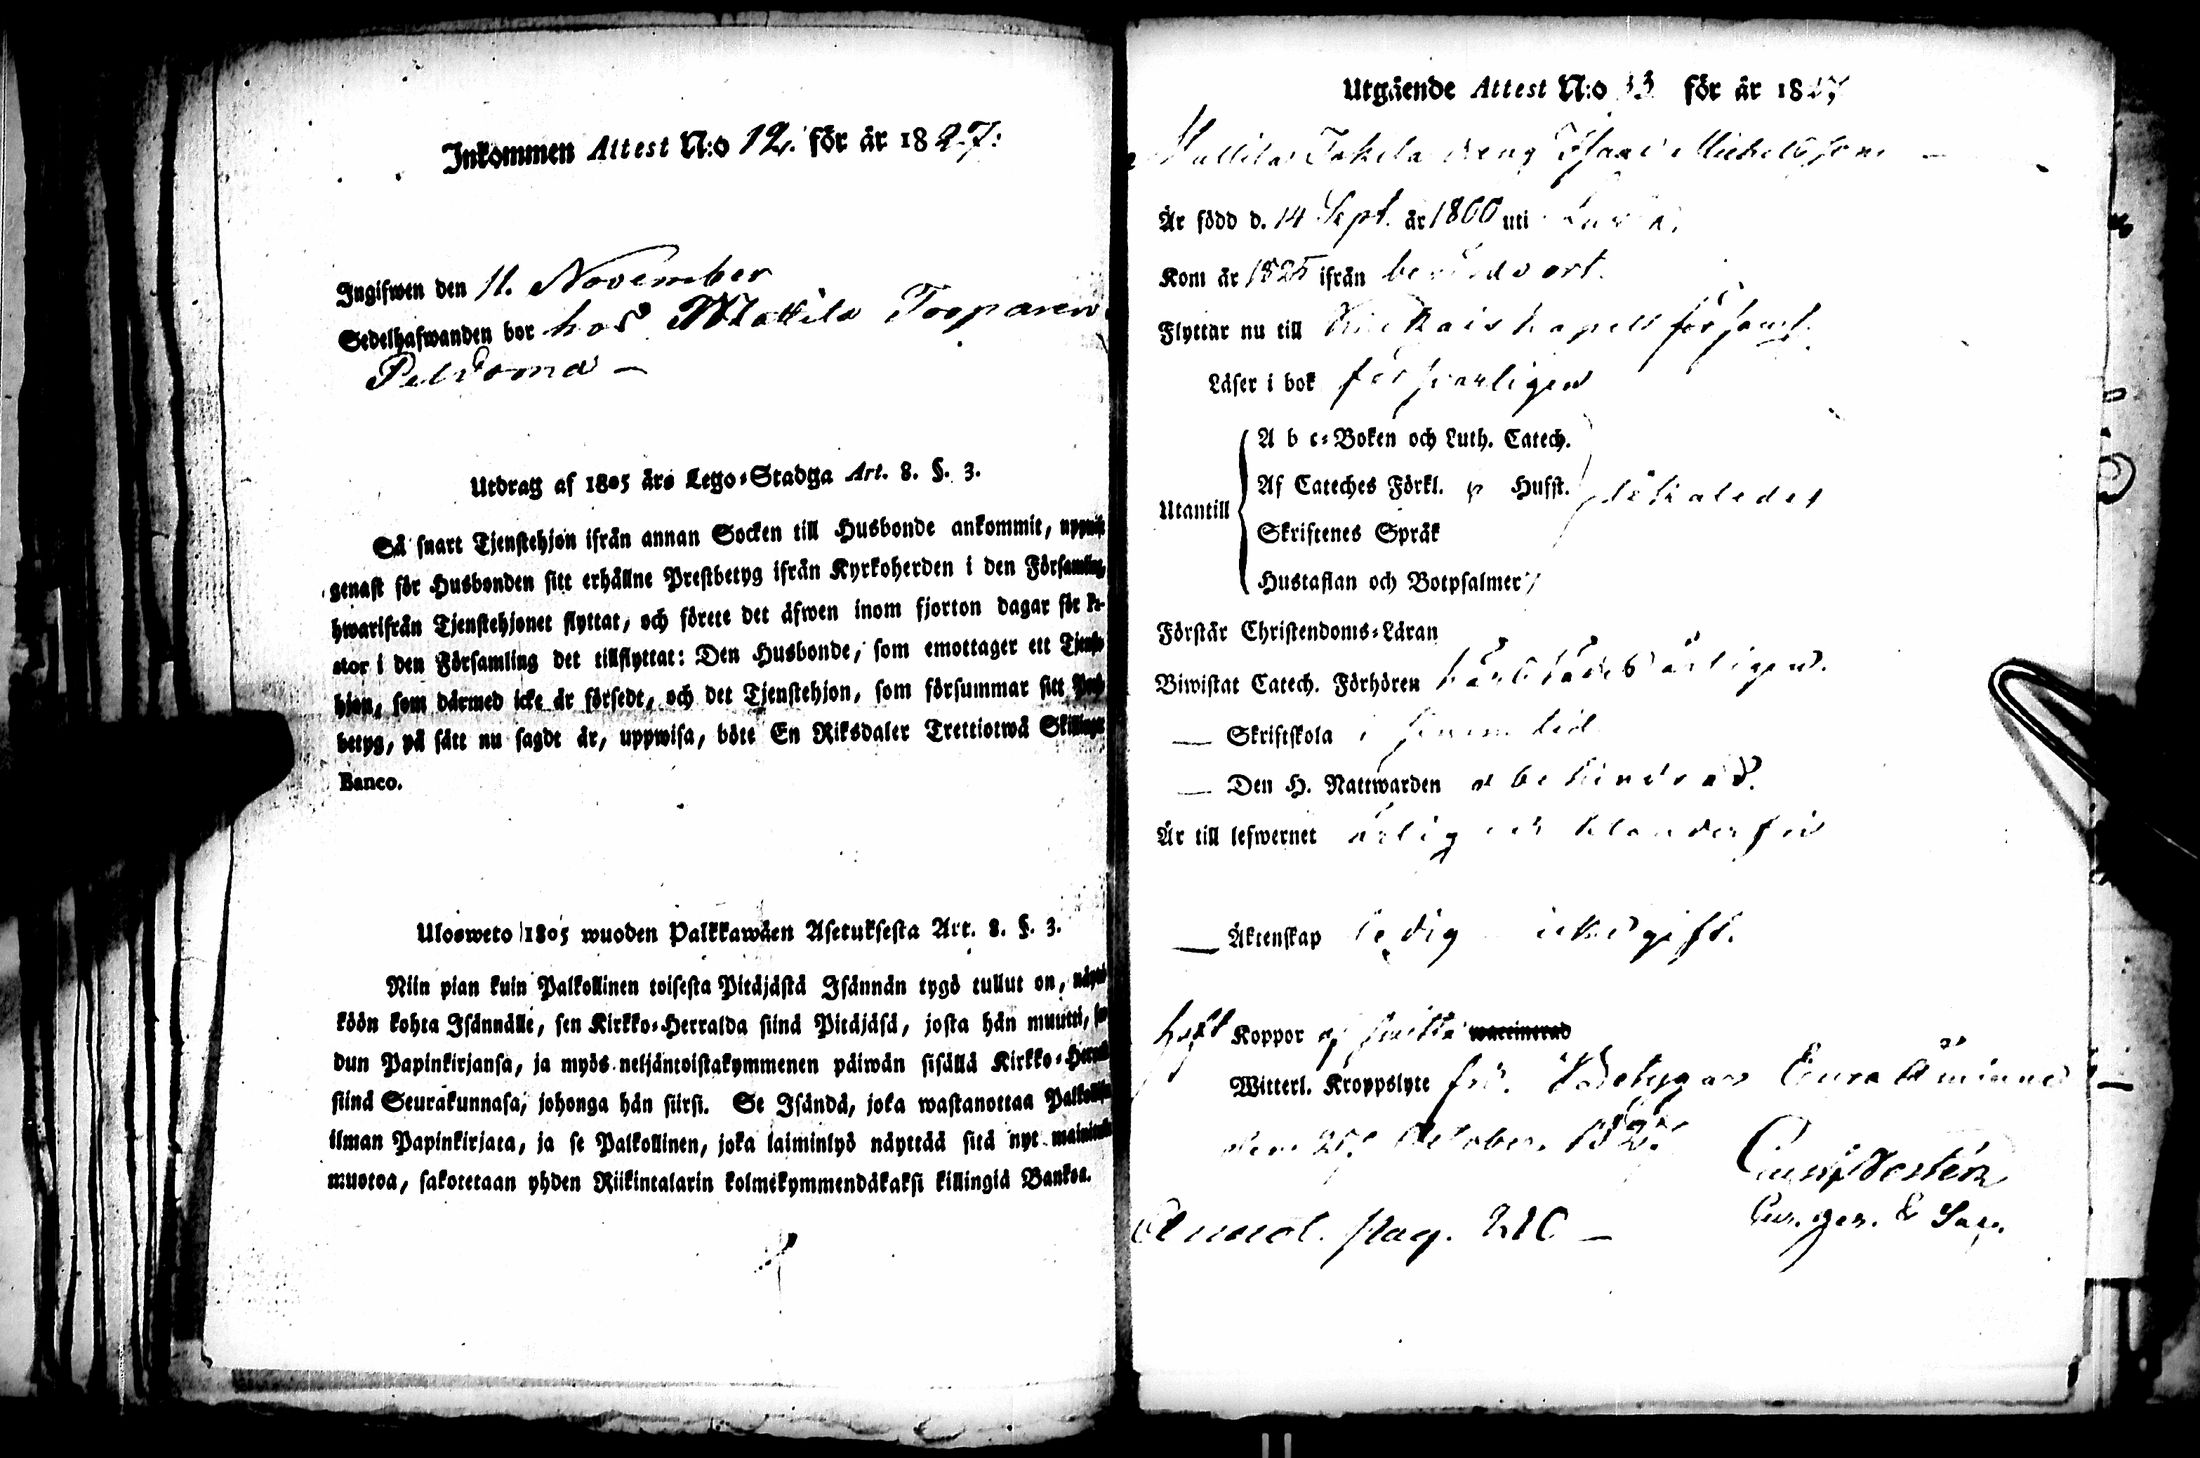 Inkommen Attest N:o 12. för år 1827:
Ingifwen den 11. November
Sedelhafwanden bor hos Mattila Torparen
Peldoma –
Utdrag af 1805 års Lego-Stadga Art. 8. §. 3.
Så snart Tjenstehjon ifrån annan Socken till Husbonde ankommit, uppwise
genast för Husbonden sitt erhållne Prestbetyg ifrån Kyrkoherden i den Församling,
hwarifrån Tjenstehjonet flyttat, och förete det äfwen inom fjorton dagar för Pa-
stor i den Församling det tillflyttat: Den Husbonde, som emottager ett Tjenste-
hjon, som därmed icke är försedt, och det Tjenstehjon, som försummar sitt Prest-
betyg, på sätt nu sagdt är, uppwisa, böte En Riksdaler Trettiotwå Skillingar
Banco.
Ulosweto 1805 wuoden Palkkawäen Asetuksesta Art. 8. §. 3.
Niin pian kuin Palkollinen toisesta Pitäjästä Isännän tygö tullut on, näyt-
köön kohta Isännälle, sen Kirkko-Herralda siinä Pitäjäsä, josta hän muutti, saa-
dun Papinkirjansa, ja myös neljäntoistakymmenen päiwän sisällä Kirkko-Herralle
siinä Seurakunnasa, johonga hän siirsi. Se Isändä, joka wastanottaa Palkollisen
ilman Papinkirjata, ja se Palkollinen, joka laiminlyö näyttää sitä nyt mainitulla
muotoa, sakotetaan yhden Riikintalarin kolmekymmendäkaksi killingiä Bankoa.
Utgående Attest N:o 33 för år 1827
dreng Isaac Michelsson –
Är född d. 14 Sept. år 1800 uti
Kom år 1825 ifrån ort.
Flyttar nu till Kapell församl.
Läser i bok försvarligen
Utantill
A b c-Boken och Luth. Catech.
Af Cateches Förkl. o Husst.
Skriftenes Språk
Hustaflan och Botpsalmer
Förstår Christendoms-Läran
Biwistat Catech. Förhören årligen.
— Skriftskola i sinom tid
— Den H. Nattwarden obehindrad.
Är till lefwernet ärlig och klanderfri
— Äktenskap ledig icke gift.
haft Koppor waccinerad
Witterl. Kroppslyte fri. Betygar Eura Åminne
den 25 October 1827
Annot. pag. 210 –